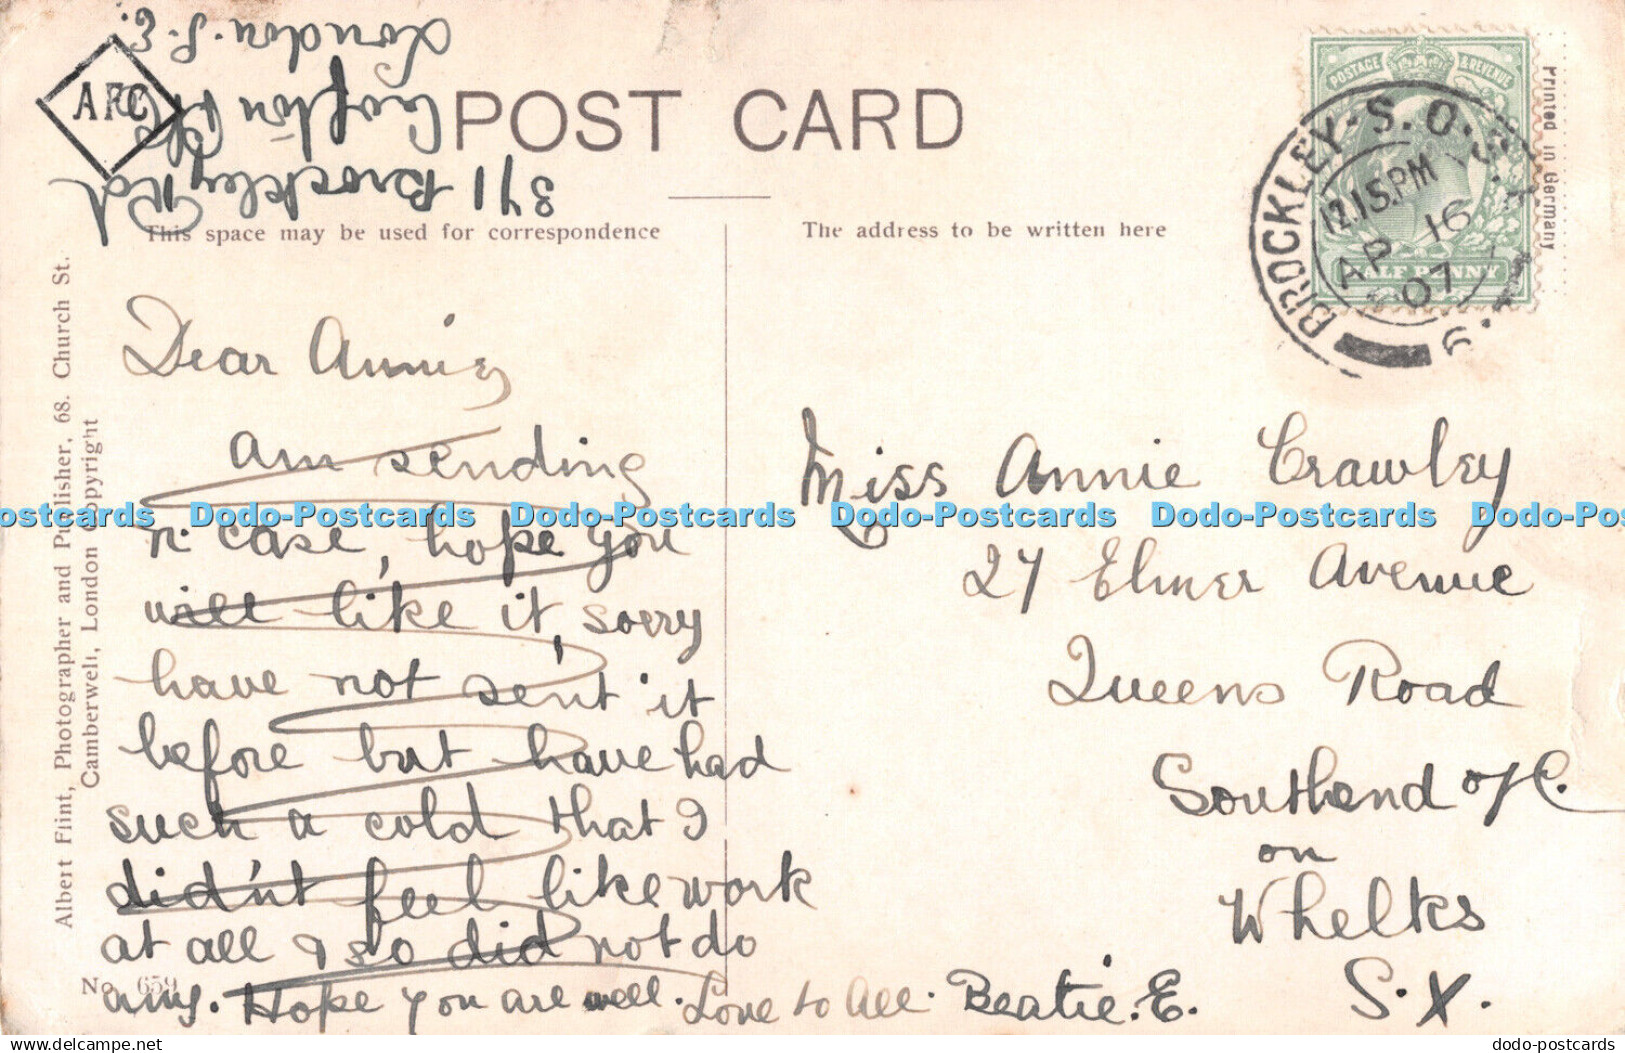 London. S. E.
Crofton Pk
371 Brockley Rd
AFC
POST CARD
POSTAGE & REVENUE
HALF PENNY
BROCKLEY. S.O.
12.15.PM
AP 16
07
Printed in Germany
This space may be used for correspondence
The address to be written here
Albert Flint, Photographer and Publisher, 68. Church St.
Camberwell, London Copyright
No. 659
Dear Annie,
am sending
n. case, hope you
will like it, sorry
have not sent it
before but have had
such a cold that I
didn't feel like work
at all & so did not do
any. Hope you are well.
Love to All. Beatie. E.
Miss Annie Crawley
27 Elmer Avenue
Queens Road
Southend
on
Whelks
S. X.
Dodo-Postcards Dodo-Postcards Dodo-Postcards Dodo-Postcards Dodo-Postcards
dodo-postcards.com